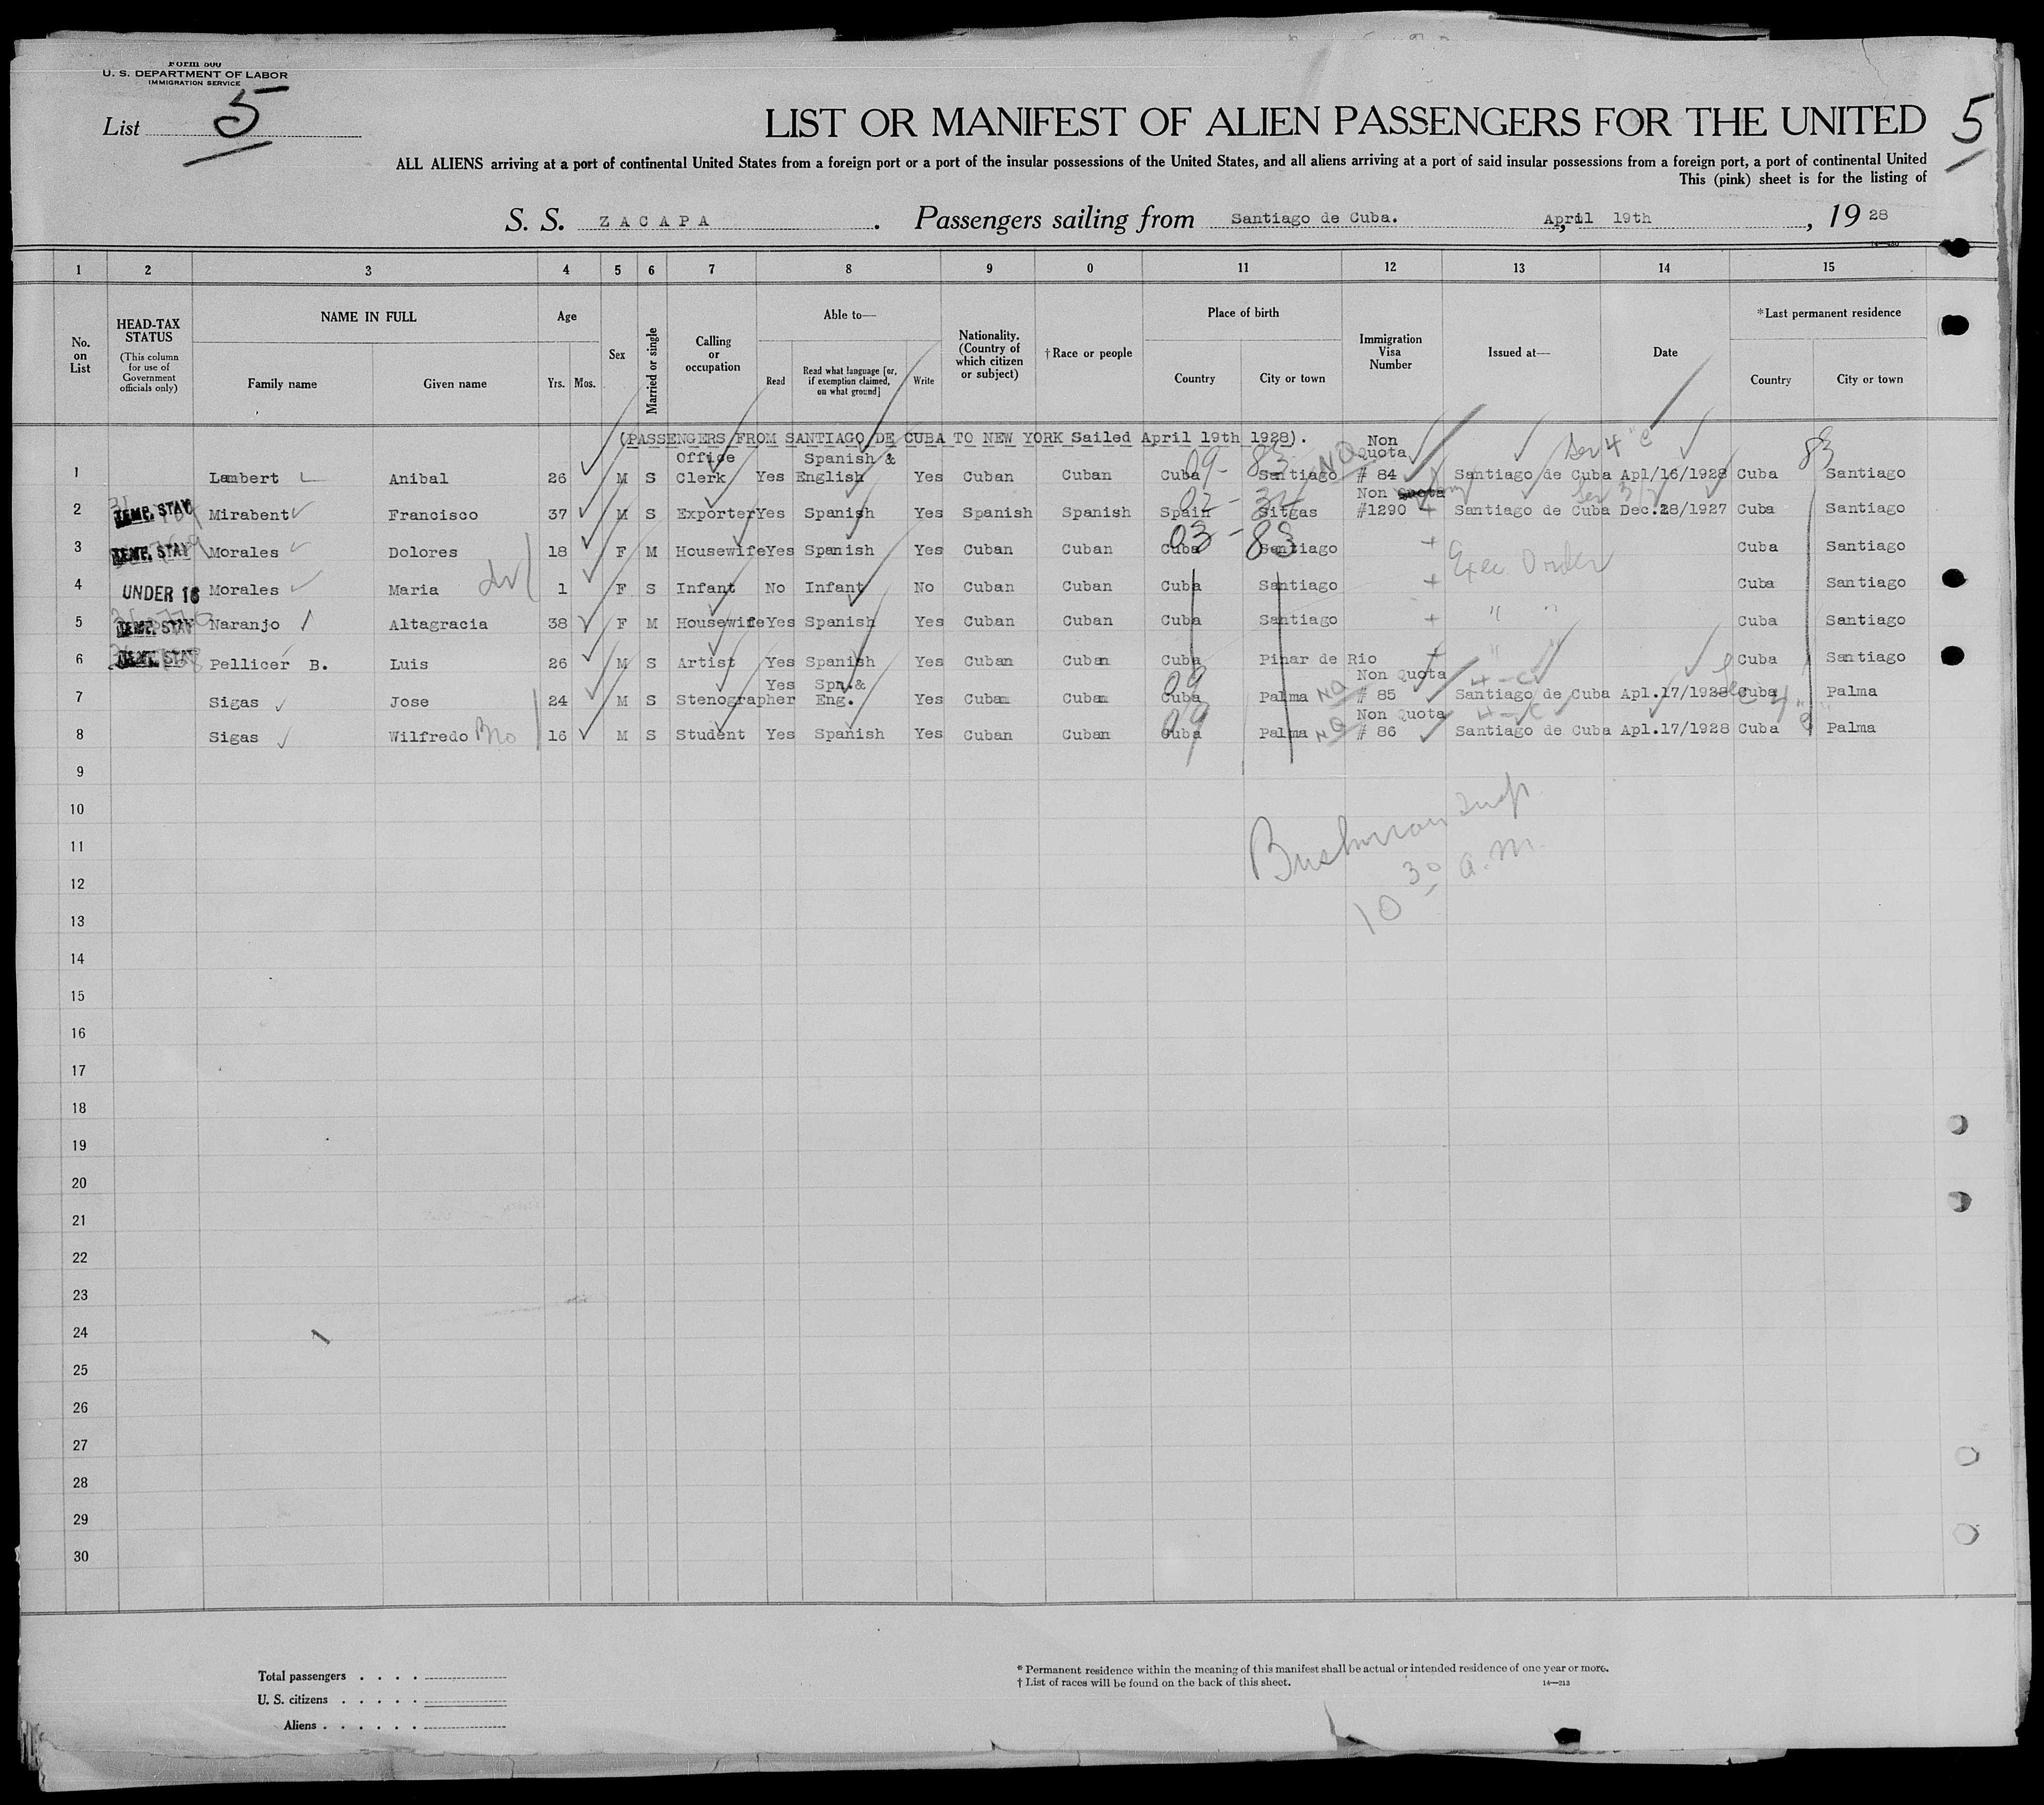 Form 500
U. S. DEPARTMENT OF LABOR
IMMIGRATION SERVICE
List 5
LIST OR MANIFEST OF ALIEN PASSENGERS FOR THE UNITED 5
ALL ALIENS arriving at a port of continental United States from a foreign port or a port of the insular possessions of the United States, and all aliens arriving at a port of said insular possessions from a foreign port, a port of continental United
This (pink) sheet is for the listing of
S. S. ZACAPA. Passengers sailing from Santiago de Cuba. April 19th, 1928
1 2 3 4 5 6 7 8 9 0 11 12 13 14 15
No. on List
HEAD-TAX STATUS (This column for use of Government officials only)
NAME IN FULL
Family name Given name
Age
Yrs. Mos.
Sex
Married or single
Calling or occupation
Able to—
Read Read what language [or, if exemption claimed, on what ground] Write
Nationality. (Country of which citizen or subject)
†Race or people
Place of birth
Country City or town
Immigration Visa Number
Issued at—
Date
*Last permanent residence
Country City or town
(PASSENGERS FROM SANTIAGO DE CUBA TO NEW YORK Sailed April 19th 1928).
1 Lambert Anibal 26 M S Office Clerk Yes Spanish & English Yes Cuban Cuban Cuba Santiago NQ Non Quota # 84 Santiago de Cuba Apl/16/1928 Cuba Santiago
2 TEMP. STAY Mirabent Francisco 37 M S Exporter Yes Spanish Yes Spanish Spanish Spain Sitgas Non Quota #1290 Santiago de Cuba Dec.28/1927 Cuba Santiago
3 TEMP. STAY Morales Dolores 18 F M Housewife Yes Spanish Yes Cuban Cuban Cuba Santiago + Exec. Order Cuba Santiago
4 UNDER 16 Morales Maria 1 F S Infant No Infant No Cuban Cuban Cuba Santiago + Cuba Santiago
5 TEMP. STAY Naranjo Altagracia 38 F M Housewife Yes Spanish Yes Cuban Cuban Cuba Santiago + " " Cuba Santiago
6 TEMP. STAY Pellicer B. Luis 26 M S Artist Yes Spanish Yes Cuban Cuban Cuba Pinar de Rio + " " Cuba Santiago
7 Sigas Jose 24 M S Stenographer Yes Spn.& Eng. Yes Cuban Cuban Cuba Palma NQ Non Quota # 85 Santiago de Cuba Apl.17/1928 Cuba Palma
8 Sigas Wilfredo Bro 16 M S Student Yes Spanish Yes Cuban Cuban Cuba Palma NQ Non Quota # 86 Santiago de Cuba Apl.17/1928 Cuba Palma
9
10
11
12
13
14
15
16
17
18
19
20
21
22
23
24
25
26
27
28
29
30
10 30 a.m.
Total passengers . . . .
U. S. citizens . . . . .
Aliens . . . . . .
* Permanent residence within the meaning of this manifest shall be actual or intended residence of one year or more.
† List of races will be found on the back of this sheet.
14—213